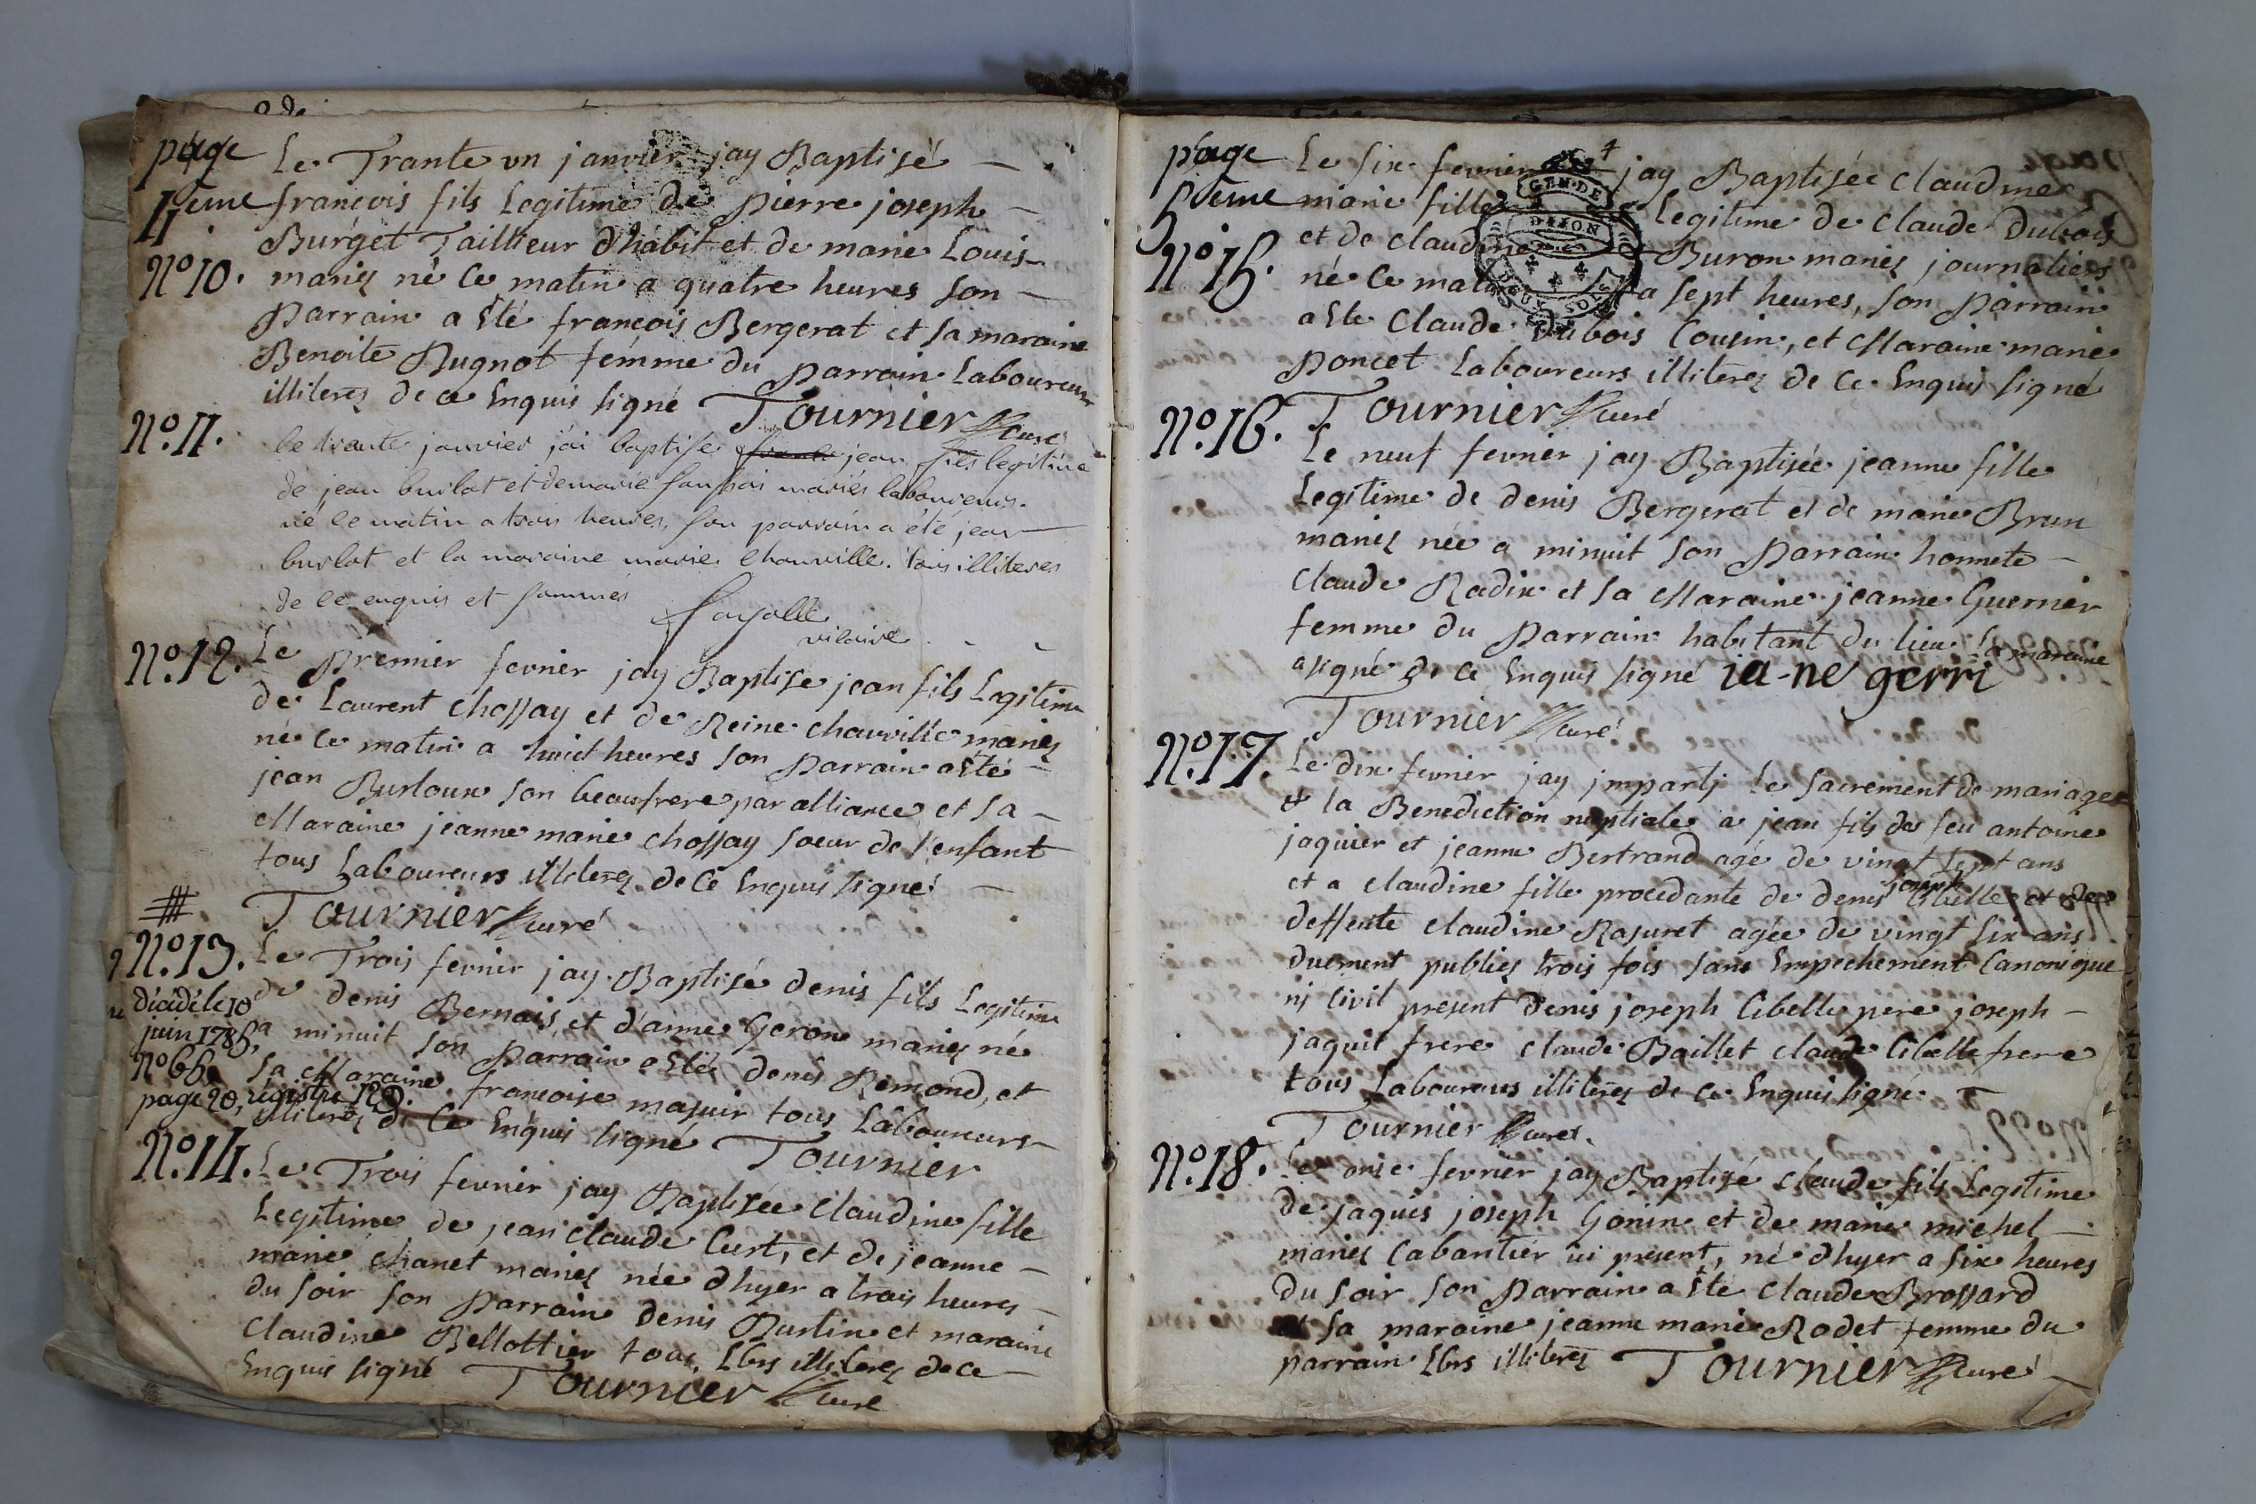 page
4eme
Le Trante un janvier jay Baptisé
francois fils Legitime de pierre joseph
Burget Taillieur d'habit et de marie Louis
N° 10.
mariez né ce matin a quatre heures son
parrain a Eté francois Bergerat et sa maraine
Benoite Pugnot femme du parrain Laboureur
illiterez de ce Enquis signé Tournier curé
N° 11.
le trante janvier j'ai baptise jean fils legitime
de jean burlat et de marie mariés laboureurs.
né le matin a trois heures, son parrain a été jean
burlat et la maraine marie Chauville. tous illiteres
de ce enquis et sommés
vicaire
N° 12.
Le premier fevrier jay Baptise jean fils Legitime
de Laurent chossay et de Reine chauville mariez
né ce matin a huict heures son parrain a Eté
jean Burloux son beaufrere par alliance et sa
Maraine jeanne marie chossay soeur de l'enfant
tous Laboureurs illiterez de ce Enquis signé
Tournier curé
N° 13.
Le Trois fevrier jay Baptisé denis fils Legitime
de denis Bernais, et d'anne Geron mariez né
a minuit son parrain a Eté denis Remond, et
sa Maraine francoise masuir tous Laboureurs
illiterez de ce Enquis signé Tournier
décédé le 10
juin 1785,
N° 65,
page 20, registre
N° 14.
Le Trois fevrier jay Baptisée claudine fille
Legitime de jean claude Curt, et de jeanne
marie chanet mariez née d'hyer a trois heures
du soir son parrain denis Burlin et maraine
claudine Bellottier tous Lbrs illiterez de ce
Enquis signé Tournier curé
page
5eme
4
GEN. DE
DIJON
DEUX SOLS
Le six fevrier jay Baptisée claudine
marie fille Legitime de claude dubois
N° 15.
et de claudine Buron mariez journaliers
né ce matin a sept heures, son parrain
a Ete claude dubois Cousin, et Maraine marie
poncet Laboureurs illiterez de ce Enquis signé
Tournier curé
N° 16.
Le neuf fevrier jay Baptisée jeanne fille
Legitime de denis Bergerat et de marie Brun
mariez née a minuit son parrain honnete
claude Radix et sa Maraine jeanne Guerrier
femme du parrain habitant du lieu la maraine
a signé de ce Enquis signé ia-ne gerri
Tournier curé
N° 17.
Le dix fevrier jay imparti Le sacrement de mariage
et la Benediction nuptiale a jean fils de feu antoine
jaquier et jeanne Bertrand agé de vingt sept ans
et a claudine fille procedante de denis joseph Cibelle et de
deffunte claudine Rasuret agée de vingt six ans
duement publiez trois fois sans Empechement Canonique
ni Civil present denis joseph Cibelle pere joseph
jaquit frere claude Baillet claude Cibelle frere
tous Laboureurs illiterez de ce Enquis signé
Tournier curé.
N° 18.
Le onze fevrier jay Baptisé claude fils Legitime
de jaques joseph Gonin et de marie michel
mariez Cabantier ici present, né d'hyer a six heures
du soir son parrain a Eté claude Brossard
et sa maraine jeanne marie Rodet femme du
parrain Lbrs illiterez Tournier curé